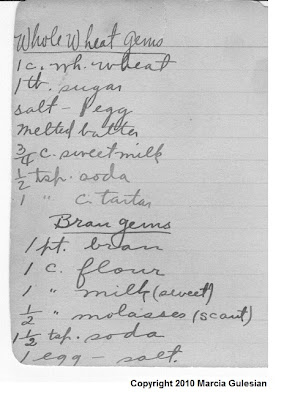 Whole Wheat gems
1 c. wh. wheat
1 tb. sugar
salt - 1 egg
melted butter
3/4 c. sweet milk
1/2 tsp. soda
1 " c. tartar
Bran gems
1 pt. bran
1 c. flour
1 " milk (sweet)
1/2 " molasses (scant)
1 1/2 tsp. soda
1 egg - salt.
Copyright 2010 Marcia Gulesian